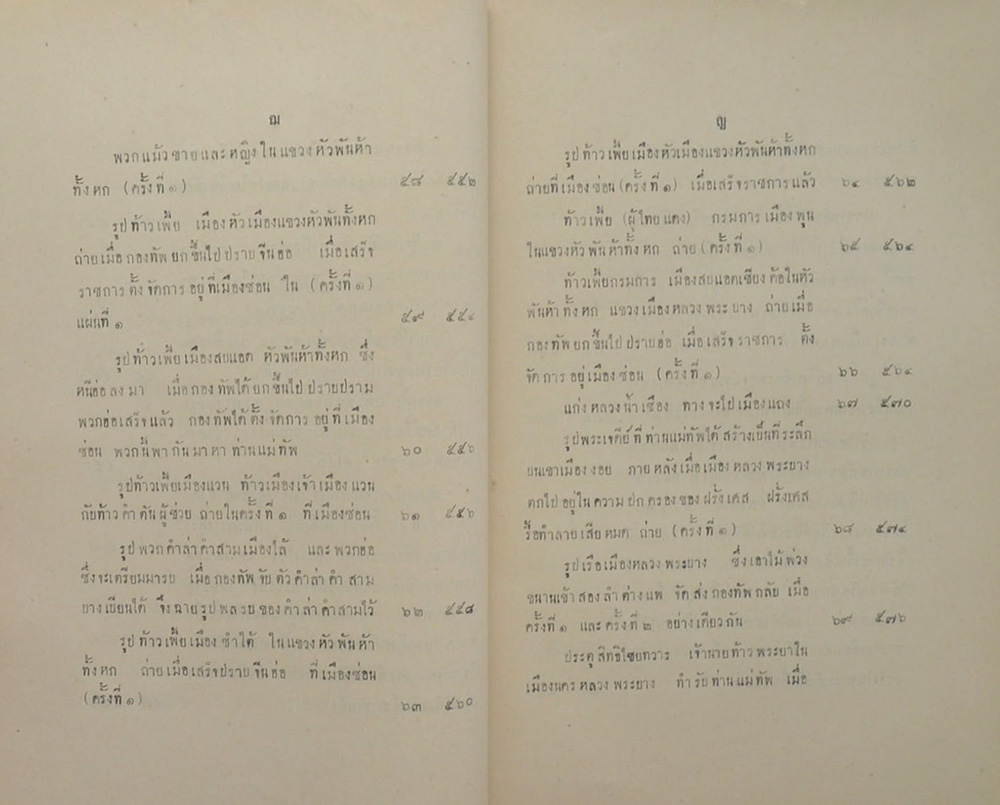 ฌ
พวกแม้วชายและหญิงในแขวงหัวพันห้า
ทั้งหก (ครั้งที่ ๑) ๕๘ ๕๕๒
รูปท้าวเพี้ย เมืองหัวเมืองแขวงหัวพันทั้งหก
ถ่ายเมื่อกองทัพยกขึ้นไปปราบจีนฮ่อ เมื่อเสร็จ
ราชการตั้งจัดการอยู่ที่เมืองซ่อน ใน (ครั้งที่ ๑)
แผ่นที่ ๑ ๕๙ ๕๕๔
รูปท้าวเพี้ยเมืองสบแอด หัวพันห้าทั้งหก ซึ่ง
หนีฮ่อลงมา เมื่อกองทัพได้ยกขึ้นไปปราบปราม
พวกฮ่อเสร็จแล้ว กองทัพได้ตั้งจัดการอยู่ที่เมือง
ซ่อน พวกนี้พากันมาหาท่านแม่ทัพ ๖๐ ๕๕๖
รูปท้าวเพี้ยเมืองแวน ท้าวเมืองเจ้าเมืองแวน
กับท้าวคำคันผู้ช่วย ถ่ายในครั้งที่ ๑ ที่เมืองซ่อน ๖๑ ๕๕๖
รูปพวกคำล่าคำสามเมืองไล้ และพวกฮ่อ
ซึ่งจะเตรียมมารบ เมื่อกองทัพจับตัวคำล่าคำสาม
บางเบียนได้ จึงฉายรูปพลรบของคำล่าคำสามไว้ ๖๒ ๕๕๘
รูปท้าวเพี้ยเมืองซำใต้ ในแขวงหัวพันห้า
ทั้งหก ถ่ายเมื่อเสร็จปราบจีนฮ่อ ที่เมืองซ่อน
(ครั้งที่ ๑) ๖๓ ๕๖๐
ญ
รูปท้าวเพี้ยเมืองหัวเมืองแขวงหัวพันห้าทั้งหก
ถ่ายที่เมืองซ่อน (ครั้งที่ ๑) เมื่อเสร็จราชการแล้ว ๖๔ ๕๖๒
ท้าวเพี้ย (ผู้ไทยแดง) กรมการเมืองพุน
ในแขวงหัวพันห้าทั้งหก ถ่าย (ครั้งที่ ๑) ๖๕ ๕๖๔
ท้าวเพี้ยกรมการ เมืองสบแอดเชียงค้อในหัว
พันห้าทั้งหก แขวงเมืองหลวงพระบาง ถ่ายเมื่อ
กองทัพยกขึ้นไปปราบฮ่อ เมื่อเสร็จราชการ ตั้ง
จัดการอยู่เมืองซ่อน (ครั้งที่ ๑) ๖๖
แก่งหลวงน้ำเซือง ทางจะไปเมืองแถง ๖๗ ๕๗๐
รูปพระเจดีย์ที่ท่านแม่ทัพได้สร้างเป็นที่ระลึก
บนเขาเมืองงอย ภายหลังเมื่อเมืองหลวงพระบาง
ตกไปอยู่ในความปกครองของฝรั่งเศส ฝรั่งเศส
รื้อทำลายเสียหมด ถ่าย (ครั้งที่ ๑) ๖๘ ๕๗๔
รูปเรือเมืองหลวงพระบาง ซึ่งเอาไม้พ่วง
ขนานเข้าสองลำต่างแพ จัดส่งกองทัพกลับ เมื่อ
ครั้งที่ ๑ และครั้งที่ ๒ อย่างเดียวกัน ๖๙ ๕๗๖
ประตูสิทธิไชยทวาร เจ้านายท้าวพระยาใน
เมืองนครหลวงพระบาง ทำรับท่านแม่ทัพ เมื่อ